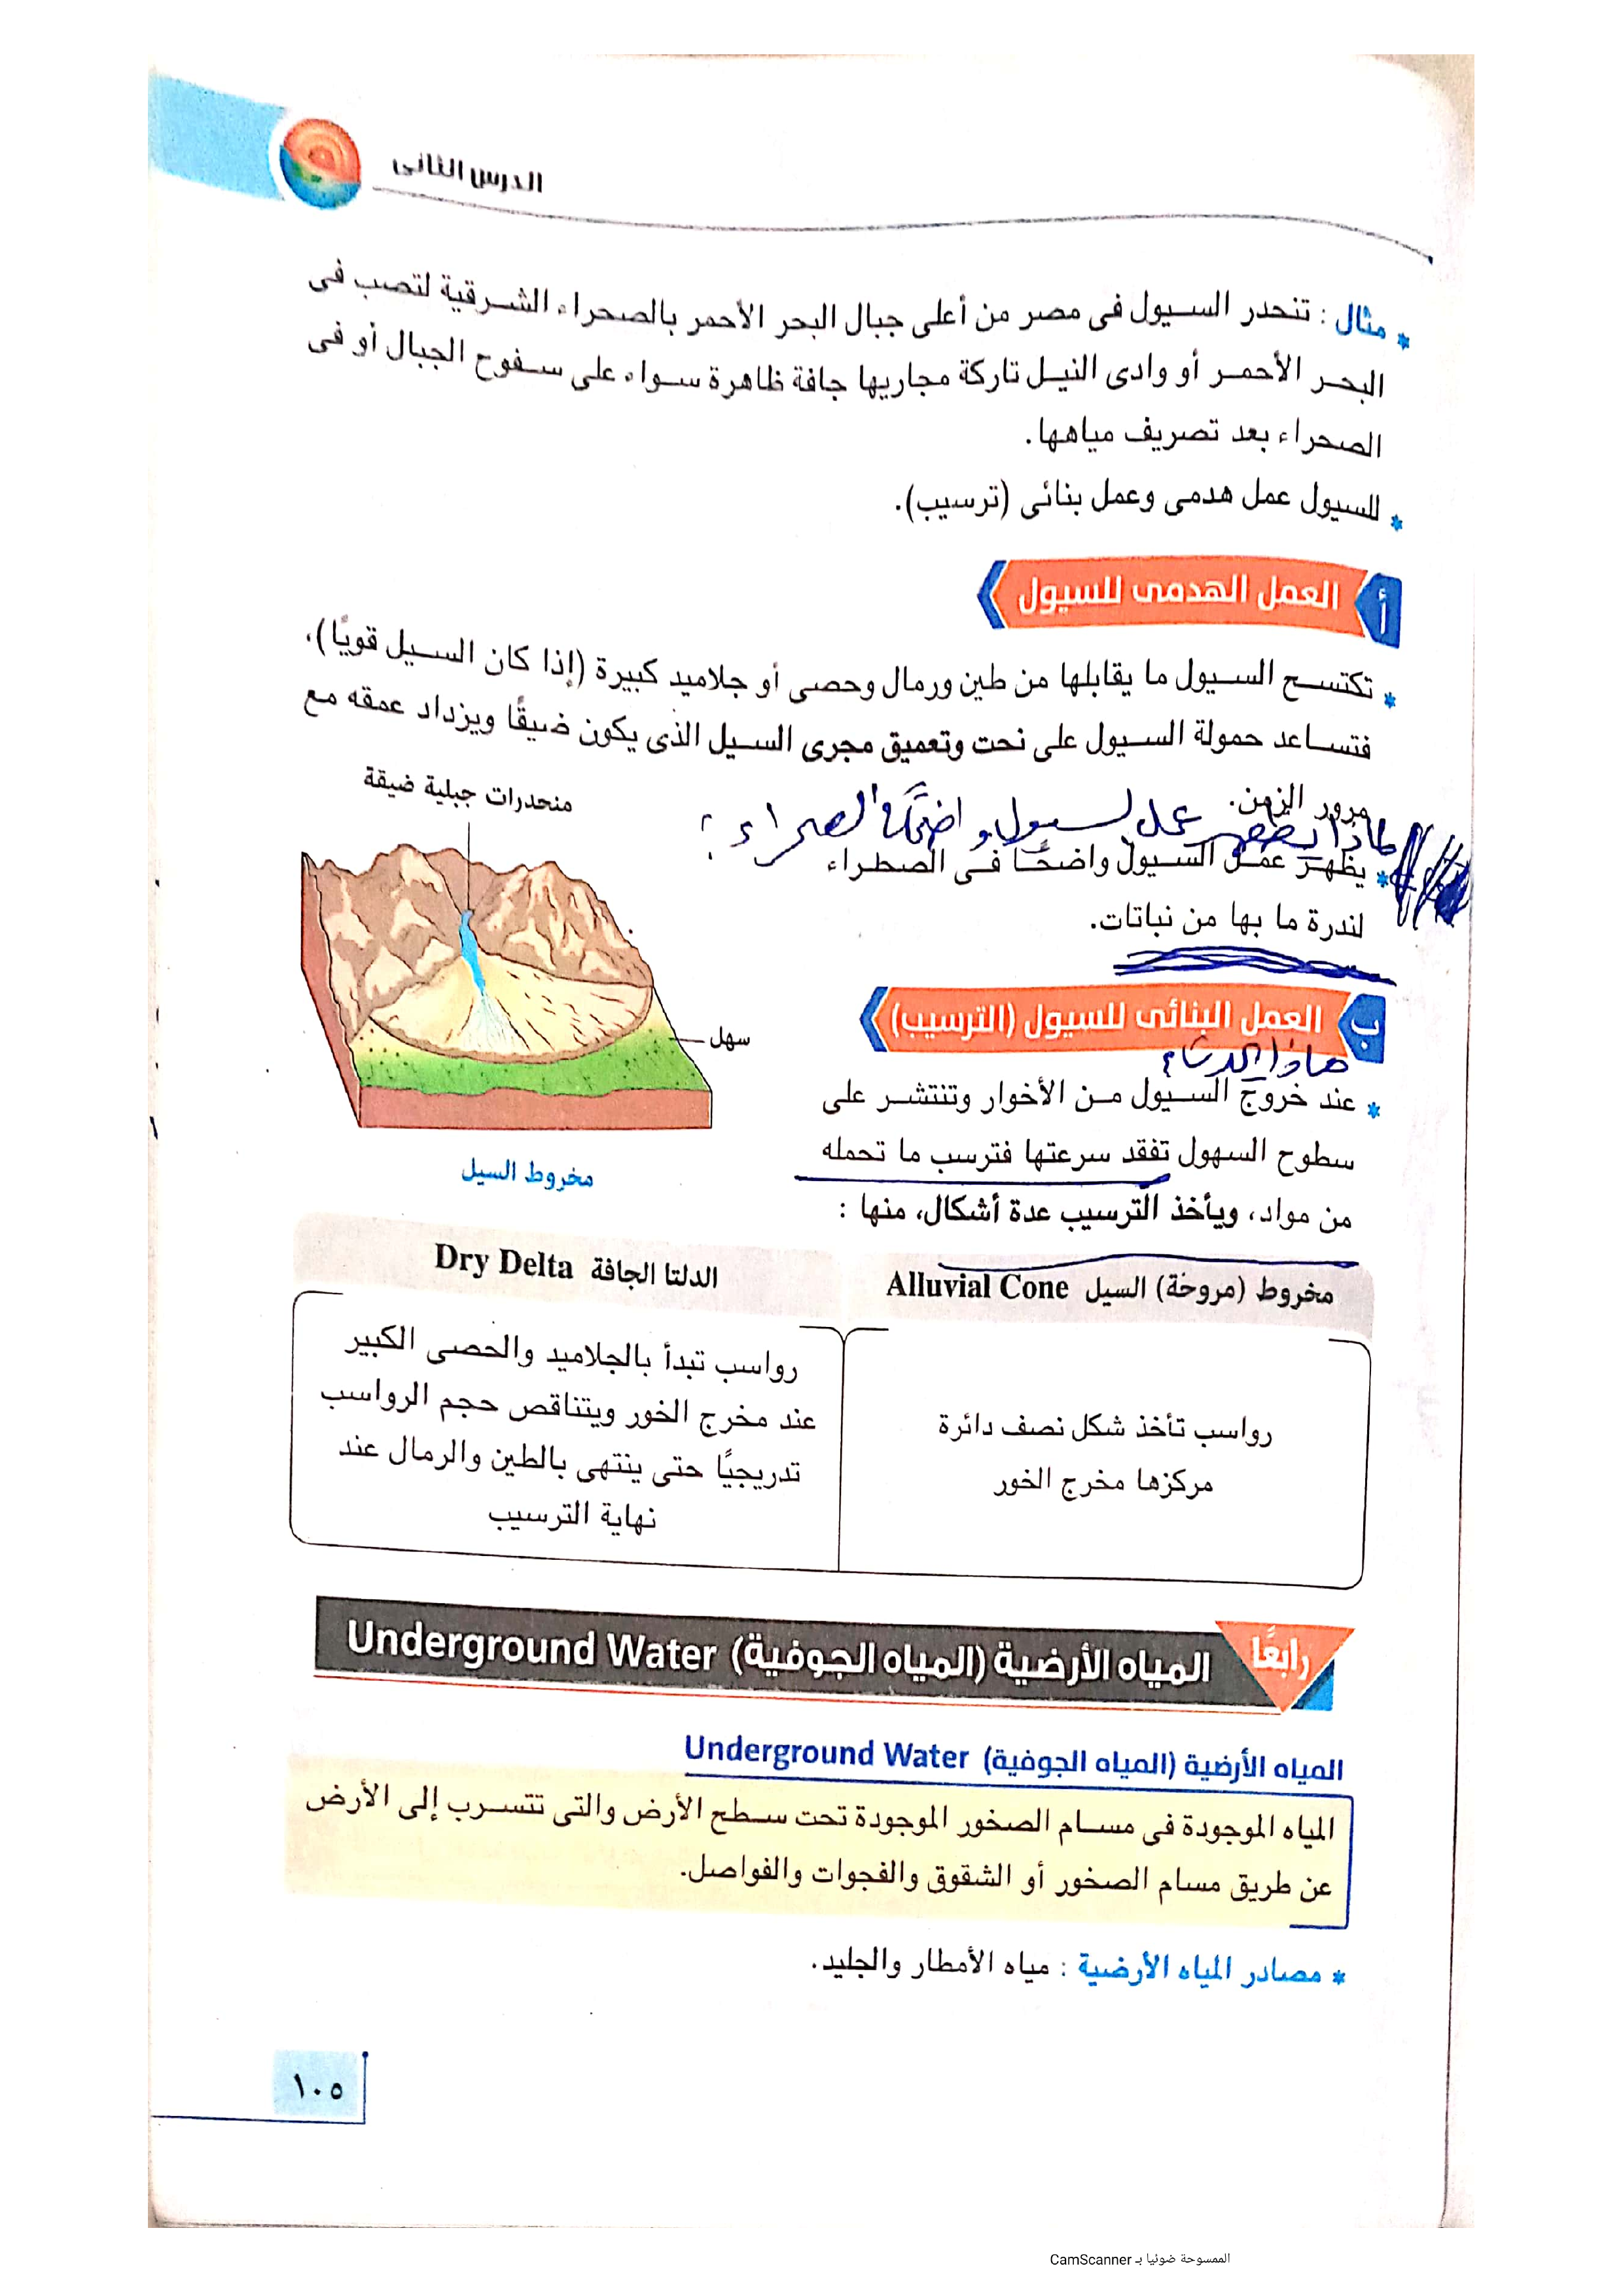 الدرس الثانى
* مثال : تنحدر السيول فى مصر من أعلى جبال البحر الأحمر بالصحراء الشرقية لتصب فى
البحر الأحمر أو وادى النيل تاركة مجاريها جافة ظاهرة سواء على سفوح الجبال أو فى
الصحراء بعد تصريف مياهها.
* للسيول عمل هدمى وعمل بنائى (ترسيب).
أ العمل الهدمى للسيول
* تكتسح السيول ما يقابلها من طين ورمال وحصى أو جلاميد كبيرة (إذا كان السيل قويًا)،
فتساعد حمولة السيول على نحت وتعميق مجرى السيل الذى يكون ضيقًا ويزداد عمقه مع
مرور الزمن.
لماذا يظهر عمل السيول واضحًا فى الصحراء ؟
* يظهر عمل السيول واضحًا فى الصطراء
لندرة ما بها من نباتات.
منحدرات جبلية ضيقة
سهل
مخروط السيل
ب العمل البنائى للسيول (الترسيب)
ماذا يحدث ؟
* عند خروج السيول من الأخوار وتنتشر على
سطوح السهول تفقد سرعتها فترسب ما تحمله
من مواد، ويأخذ الترسيب عدة أشكال، منها :
مخروط (مروحة) السيل Alluvial Cone
رواسب تأخذ شكل نصف دائرة
مركزها مخرج الخور
الدلتا الجافة Dry Delta
رواسب تبدأ بالجلاميد والحصى الكبير
عند مخرج الخور ويتناقص حجم الرواسب
تدريجيًا حتى ينتهى بالطين والرمال عند
نهاية الترسيب
رابعًا المياه الأرضية (المياه الجوفية) Underground Water
المياه الأرضية (المياه الجوفية) Underground Water
المياه الموجودة فى مسام الصخور الموجودة تحت سطح الأرض والتى تتسرب إلى الأرض
عن طريق مسام الصخور أو الشقوق والفجوات والفواصل.
* مصادر المياه الأرضية : مياه الأمطار والجليد.
١٠٥
الممسوحة ضوئيا بـ CamScanner